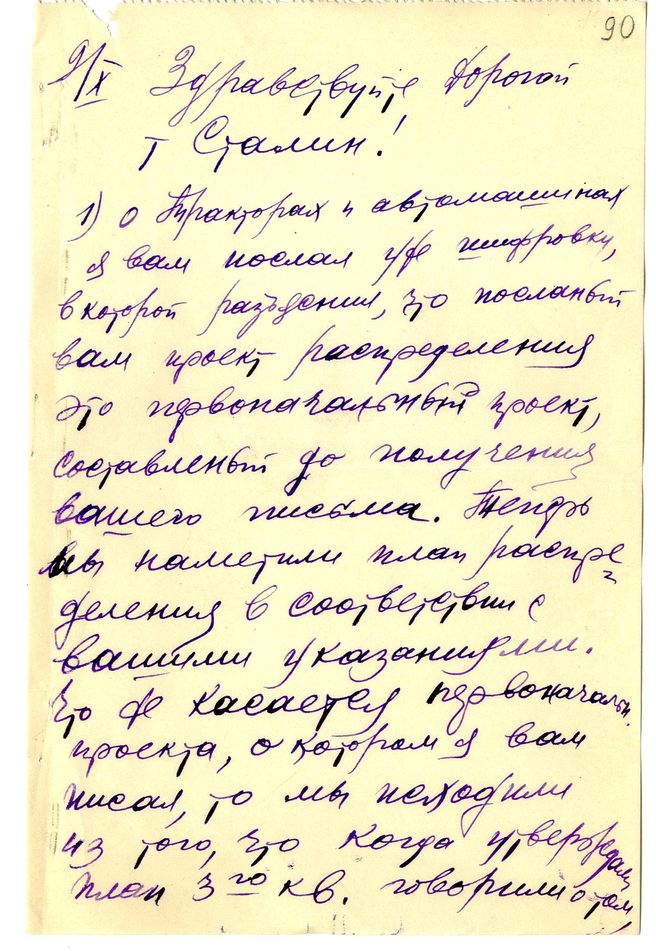 90
9/X Здравствуйте Дорогой
т Сталин!
1) о тракторах и автомашинах
я вам послал уже шифровку,
в которой разъяснил, что посланый
вам проект распределения
это первоначальный проект,
составленый до получения
вашего письма. Теперь
мы наметили план распре=
деления в соответствии с
вашими указаниями.
Что же касается первоначальн.
проекта, о котором я вам
писал, то мы исходили
из того, что когда утверждали
план 3го кв. говорили о том,